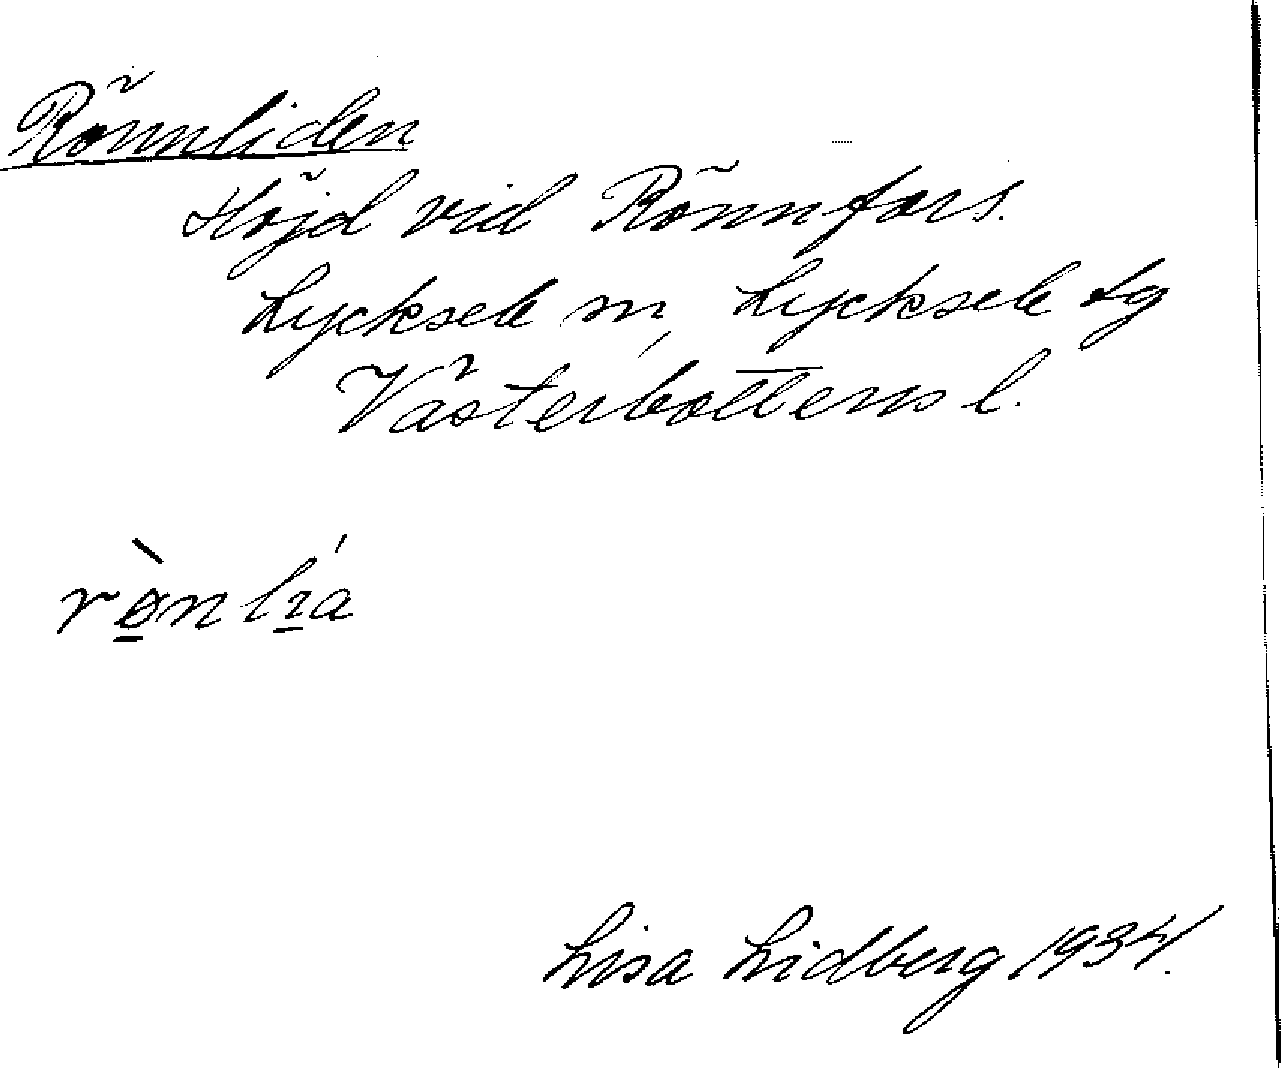 Rönnliden
Höjd vid Rönnfors.
Lycksele sn, Lycksele tg
Västerbottens l.
rø̀nlı̱á
Lisa Lidberg 1934.